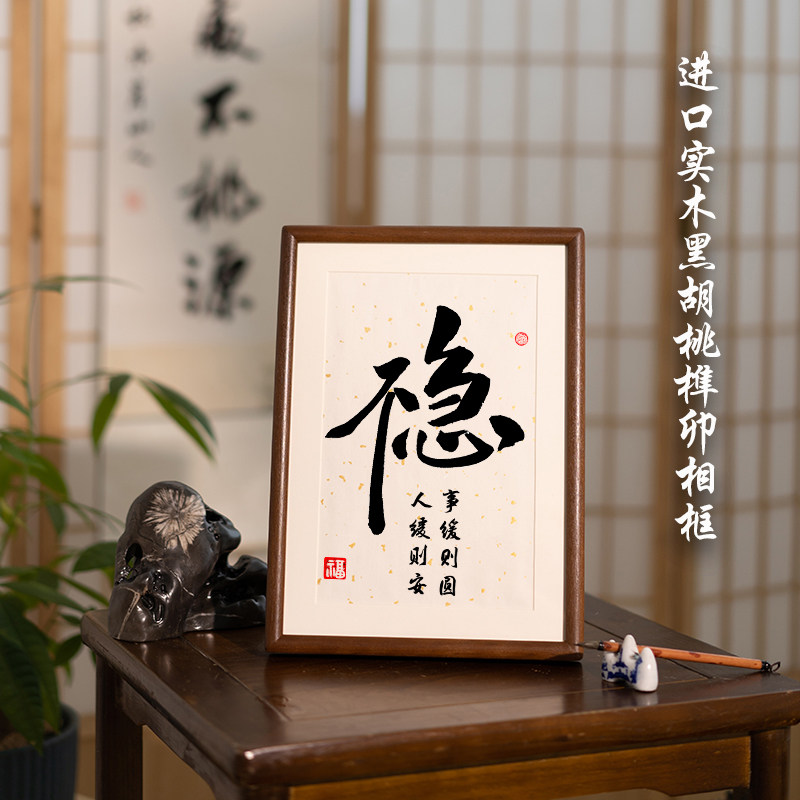 进口实木黑胡桃榫卯相框
不桃源
稳
事缓则圆
人缓则安
福